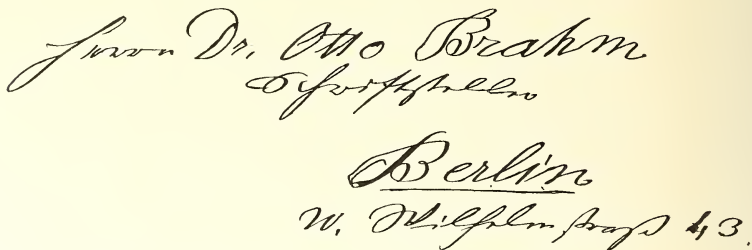 Herrn Dr. Otto Brahm
Schriftsteller
Berlin
W. Wilhelmstraße 43